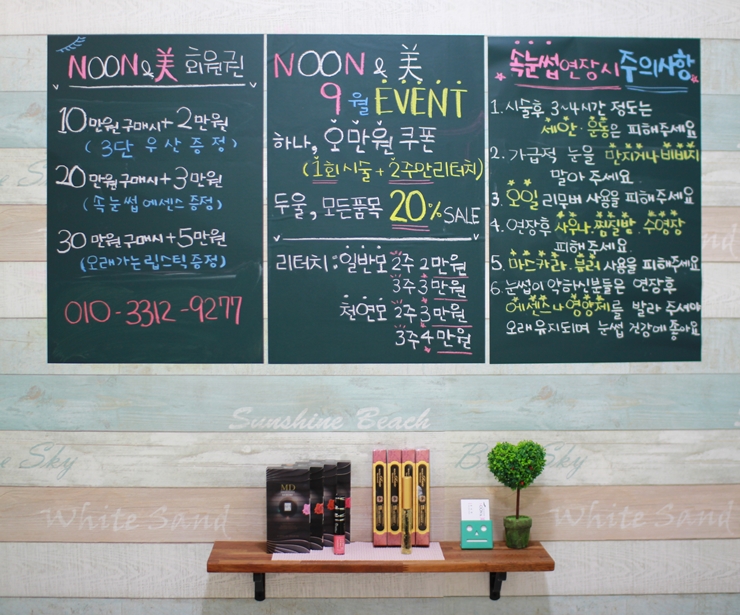 NOON & 美 회원권
10만원 구매시 + 2만원
(3단 우산 증정)
20만원구매시 + 3만원
(속눈썹 에센스 증정)
30만원구매시 + 5만원
(오래가는 립스틱증정)
010-3312-9277
NOON & 美
9월 EVENT
하나, 오만원 쿠폰
(1회 시술 + 2주안리터치)
두울, 모든품목 20% SALE
리터치 : 일반모 2주 2만원
3주 3만원
천연모 2주 3만원
3주 4만원
속눈썹연장시 주의사항
1. 시술후 3~4시간 정도는
세안·운동은 피해주세요
2. 가급적 눈을 만지거나 비비지
말아 주세요
3. 오일 리무버 사용을 피해주세요
4. 연장후 사우나·찜질방·수영장
피해주세요.
5. 마스카라·뷰러 사용을 피해주세요
6. 눈썹이 약하신분들은 연장후
에센스나 영양제를 발라 주세야
오래유지되며 눈썹 건강에좋아요
Sunshine Beach
Sky
White Sand
White Sand
MD